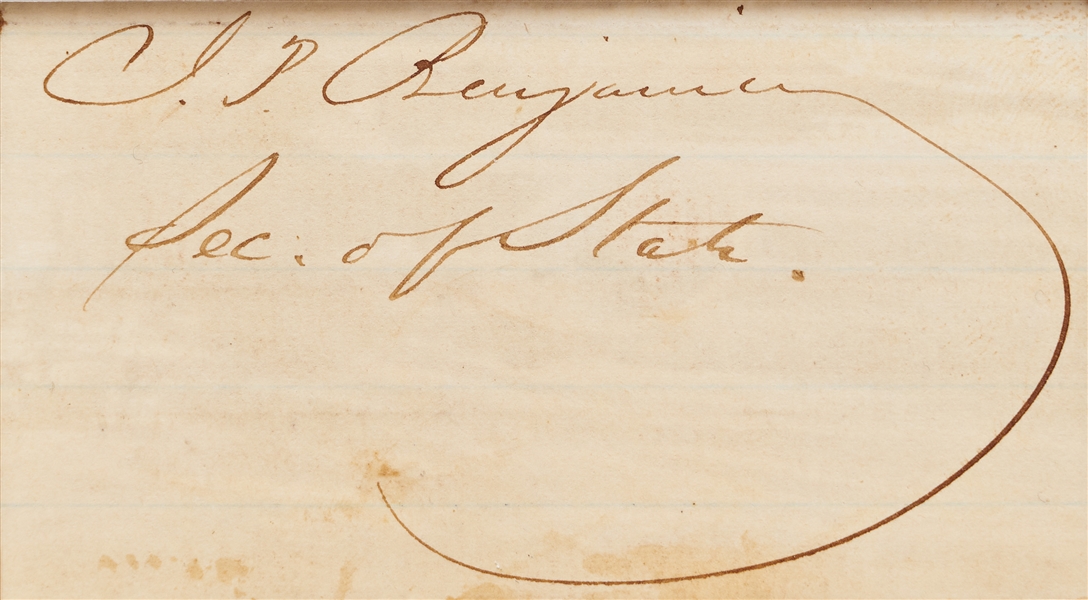 J. P. Benjamin
Sec. of State.